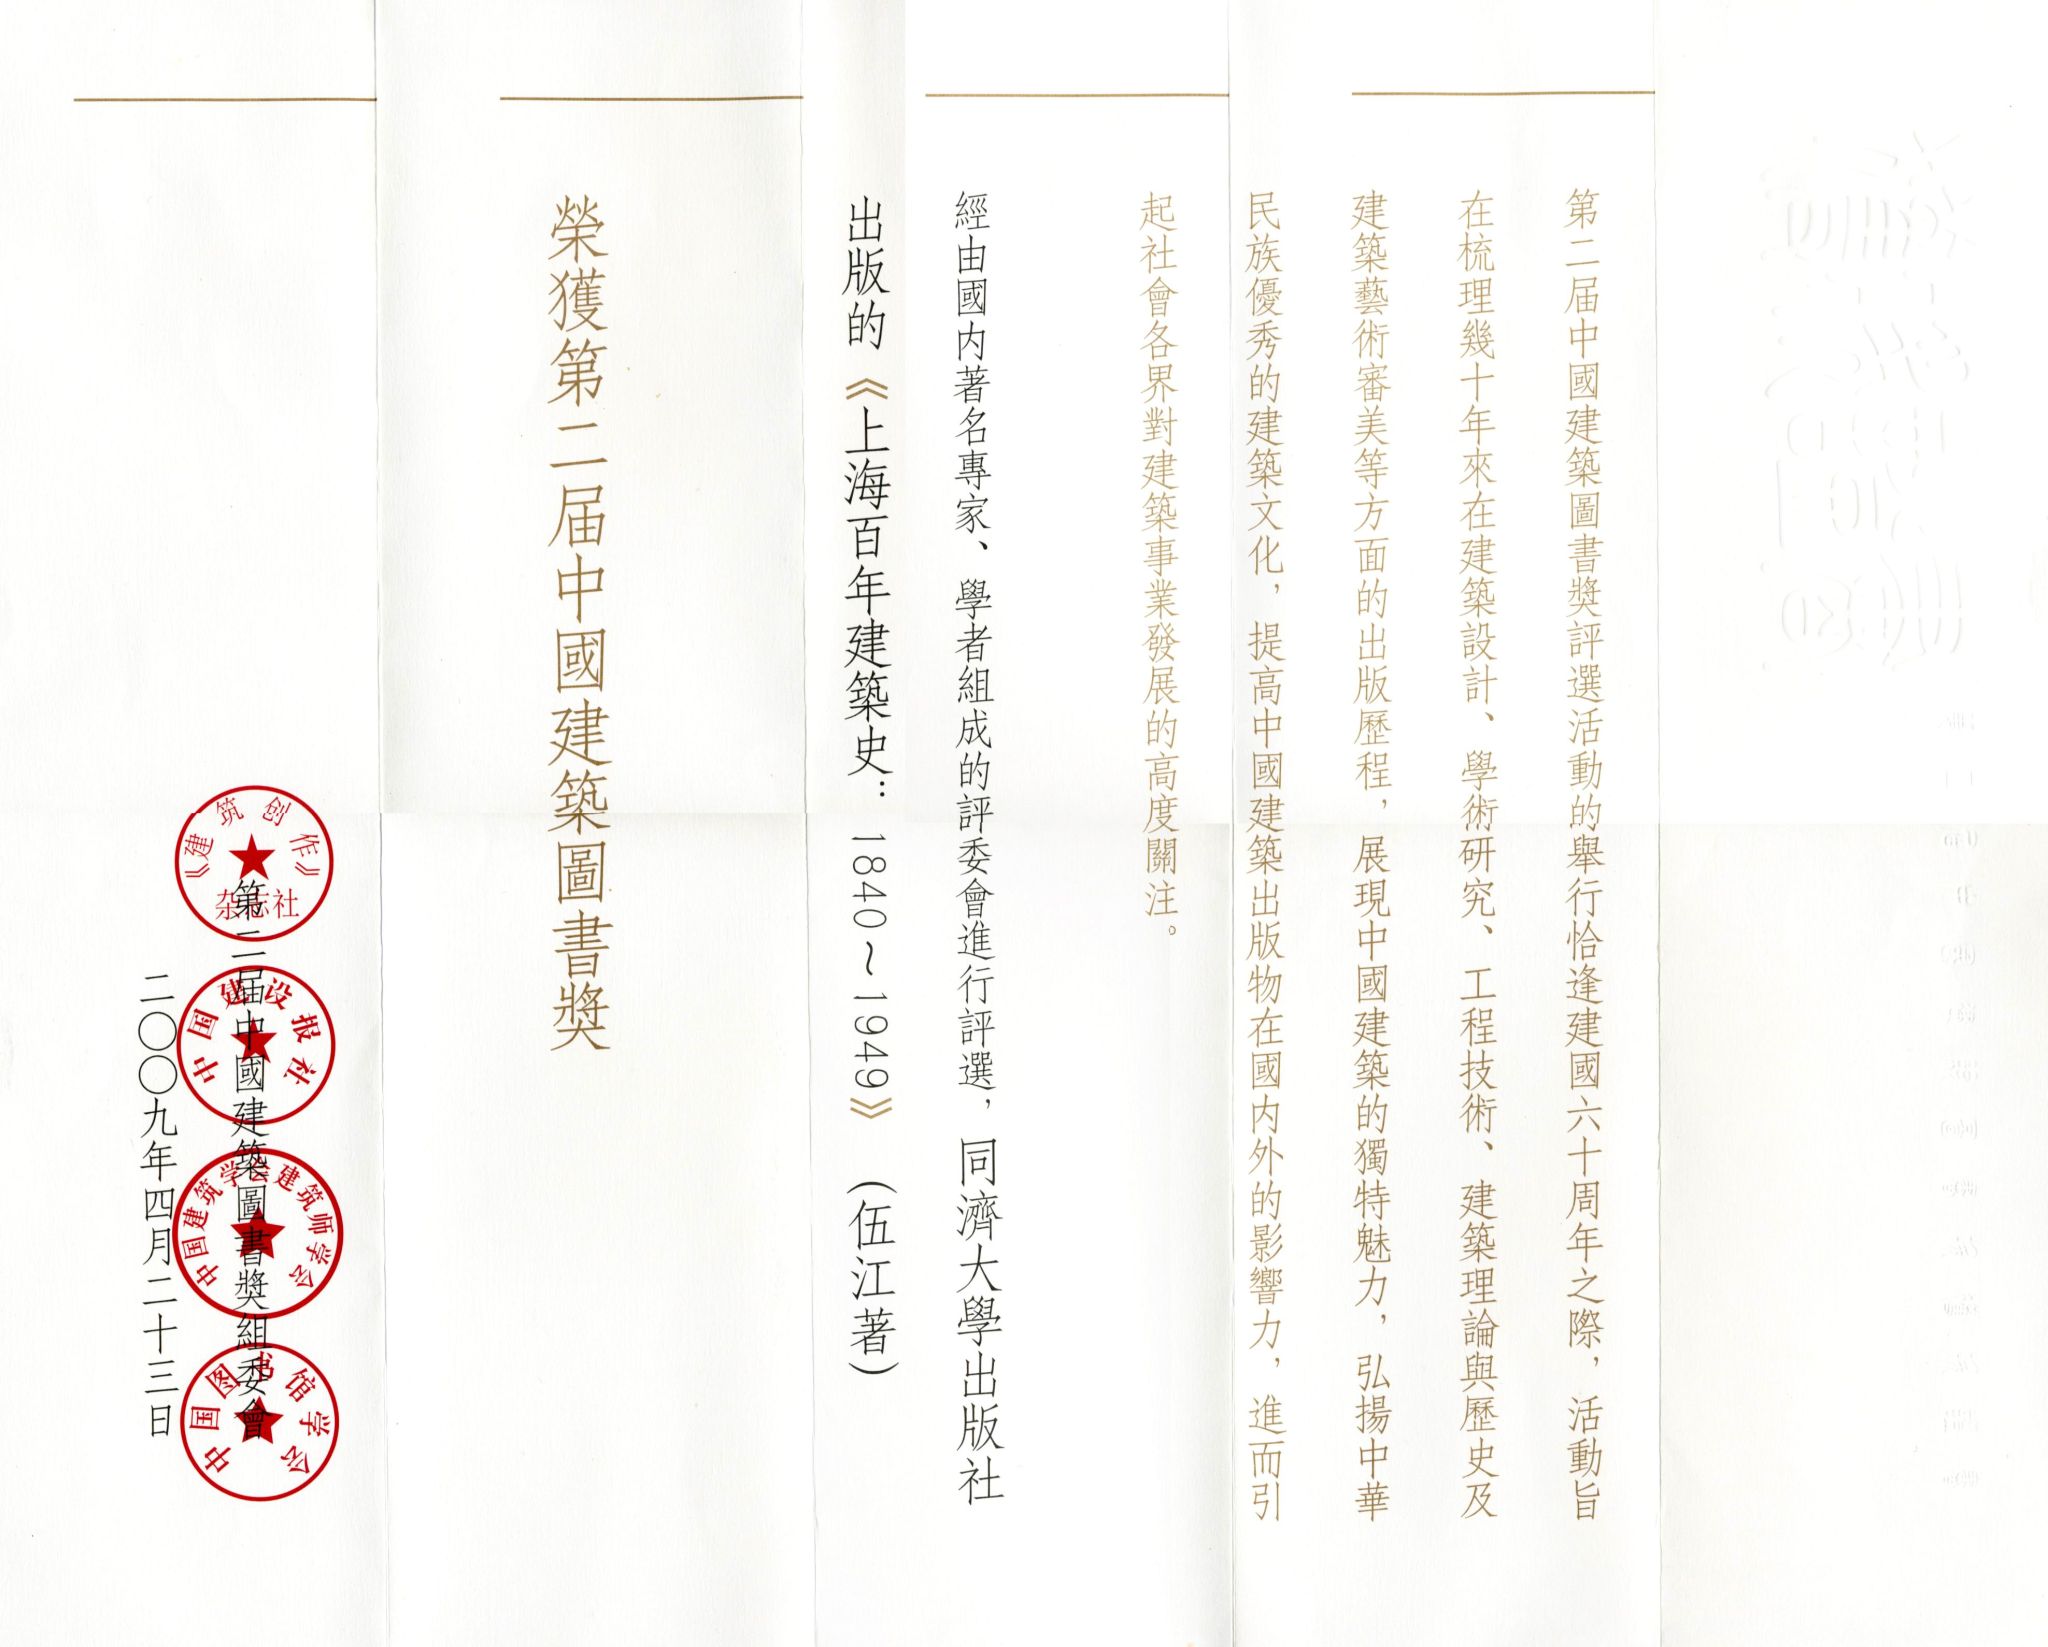 第二届中國建築圖書獎評選活動的舉行恰逢建國六十周年之際，活動旨
在梳理幾十年來在建築設計、學術研究、工程技術、建築理論與歷史及
建築藝術審美等方面的出版歷程，展現中國建築的獨特魅力，弘揚中華
民族優秀的建築文化，提高中國建築出版物在國内外的影響力，進而引
起社會各界對建築事業發展的高度關注。
經由國内著名專家、學者組成的評委會進行評選，同濟大學出版社
出版的《上海百年建築史：1840～1949》（伍江著）
榮獲第二届中國建築圖書獎
第二届中國建築圖書獎組委會
二〇〇九年四月二十三日
《建筑创作》
杂志社
中国建设报社
中国建筑学会建筑师学会
中国图书馆学会